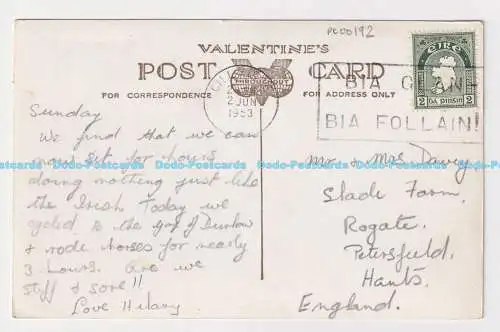 PC00192
VALENTINE'S
POST CARD
FOR CORRESPONDENCE
FOR ADDRESS ONLY
THROUGHOUT
2 JUN
1953
BIA GLAN-
BIA FOLLAIN!
EIRE
2 DA PINGIN 2
Sunday
We find that we can
now sit for hours
doing nothing just like
the Irish Today we
cycled to the gap of Dunlow
& rode horses for nearly
3 hours. Are we
stiff & sore!!
Love Hilary
Mr & Mrs Davey
Slade Farm,
Rogate,
Petersfield,
Hants.
England.
Do-Postcards Do-Postcards Do-Postcards Do-Postcards